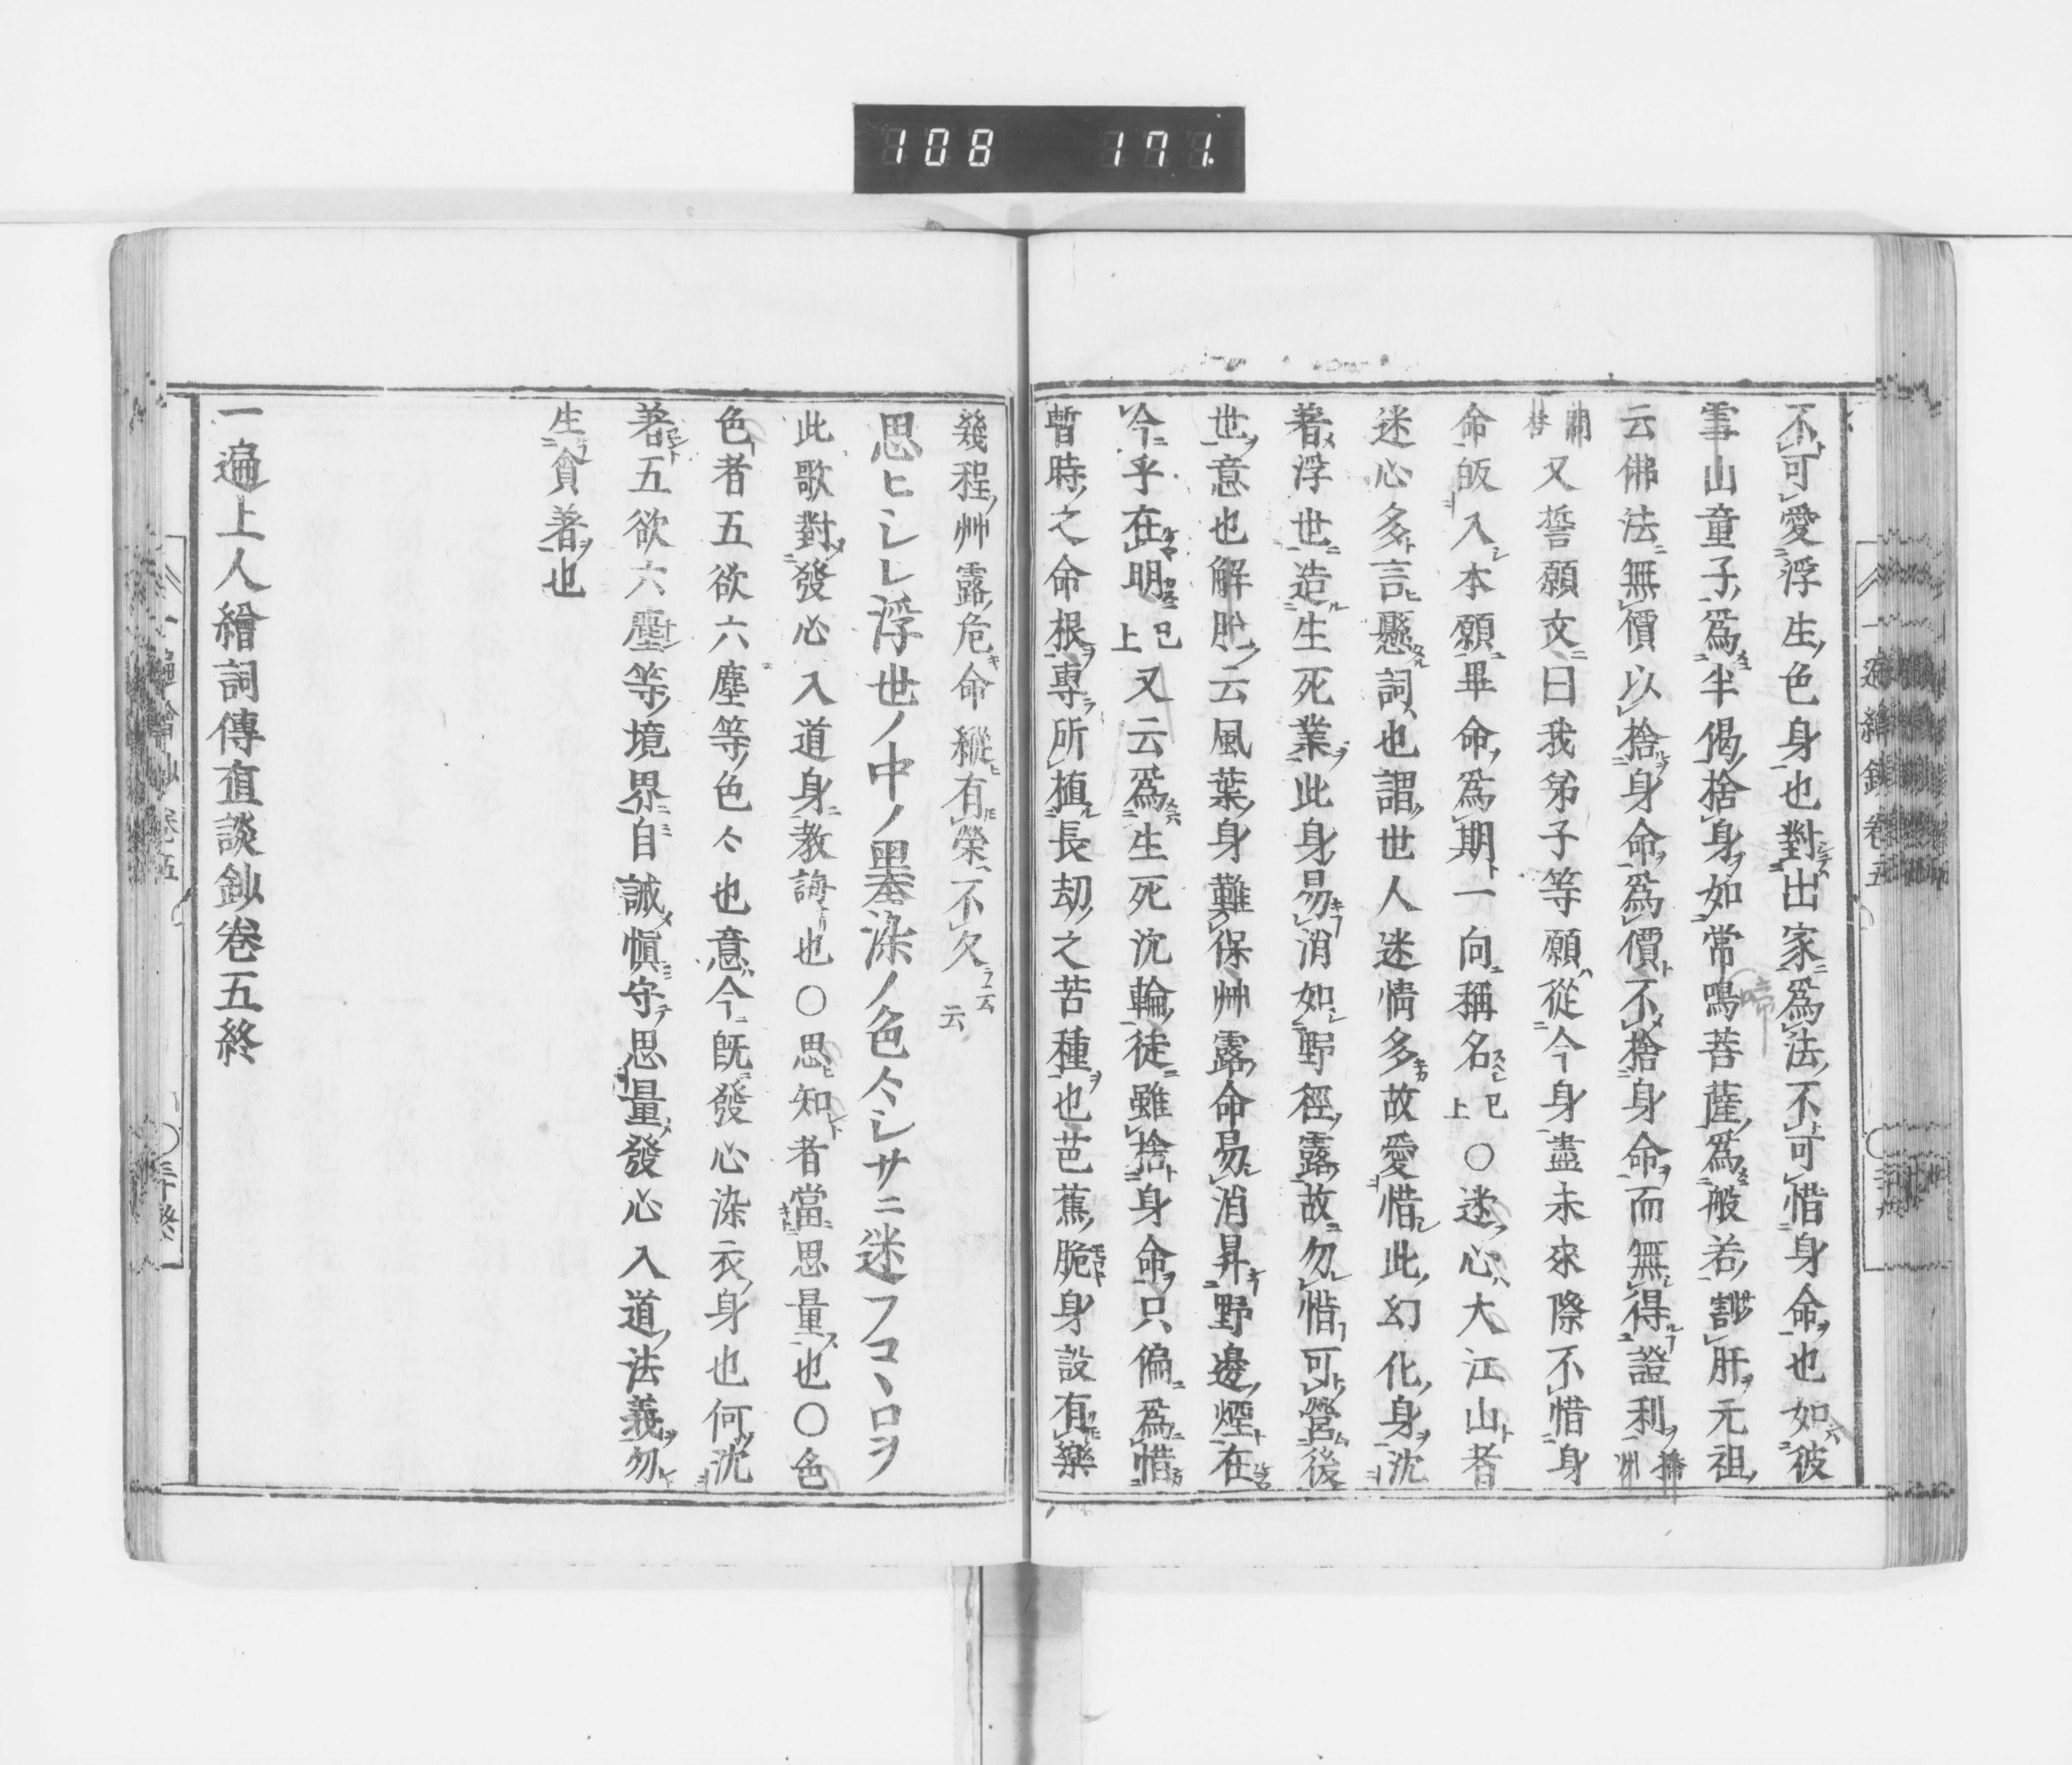 108 171.
不可愛浮生色身也對出家爲法不可惜身命也如彼
雪山童子爲半偈捨身如常鳴菩薩爲般若割肝元祖
云佛法無價以捨身命爲價不捨身命而無得證利
又誓願文曰我弟子等願從今身盡未來際不惜身
命皈入本願畢命爲期一向稱名已上〇迷心大江山者
迷心多言懸詞也謂世人迷情多故愛惜此幻化身沈
著浮世造生死業此身易消如野徑露故勿惜可營後
世意也解脫云風葉身難保艸露命易消昇野邊煙在
今乎在明已上又云爲生死沈輪徒雖捨身命只偏爲惜
暫時之命根專所植長劫之苦種也芭蕉脆身設有樂
幾程艸露危命縱有榮不久云云
思ヒシレ浮世ノ中ノ墨染ノ色々シサニ迷フコヽロヲ
此歌對發心入道身教誨也〇思知者當思量也〇色
色者五欲六塵等色々也意今既發心染衣身也何沈
著五欲六塵等境界自誡愼守思量發心入道法義勿
生貪著也
一遍上人繪詞傳直談鈔卷五終